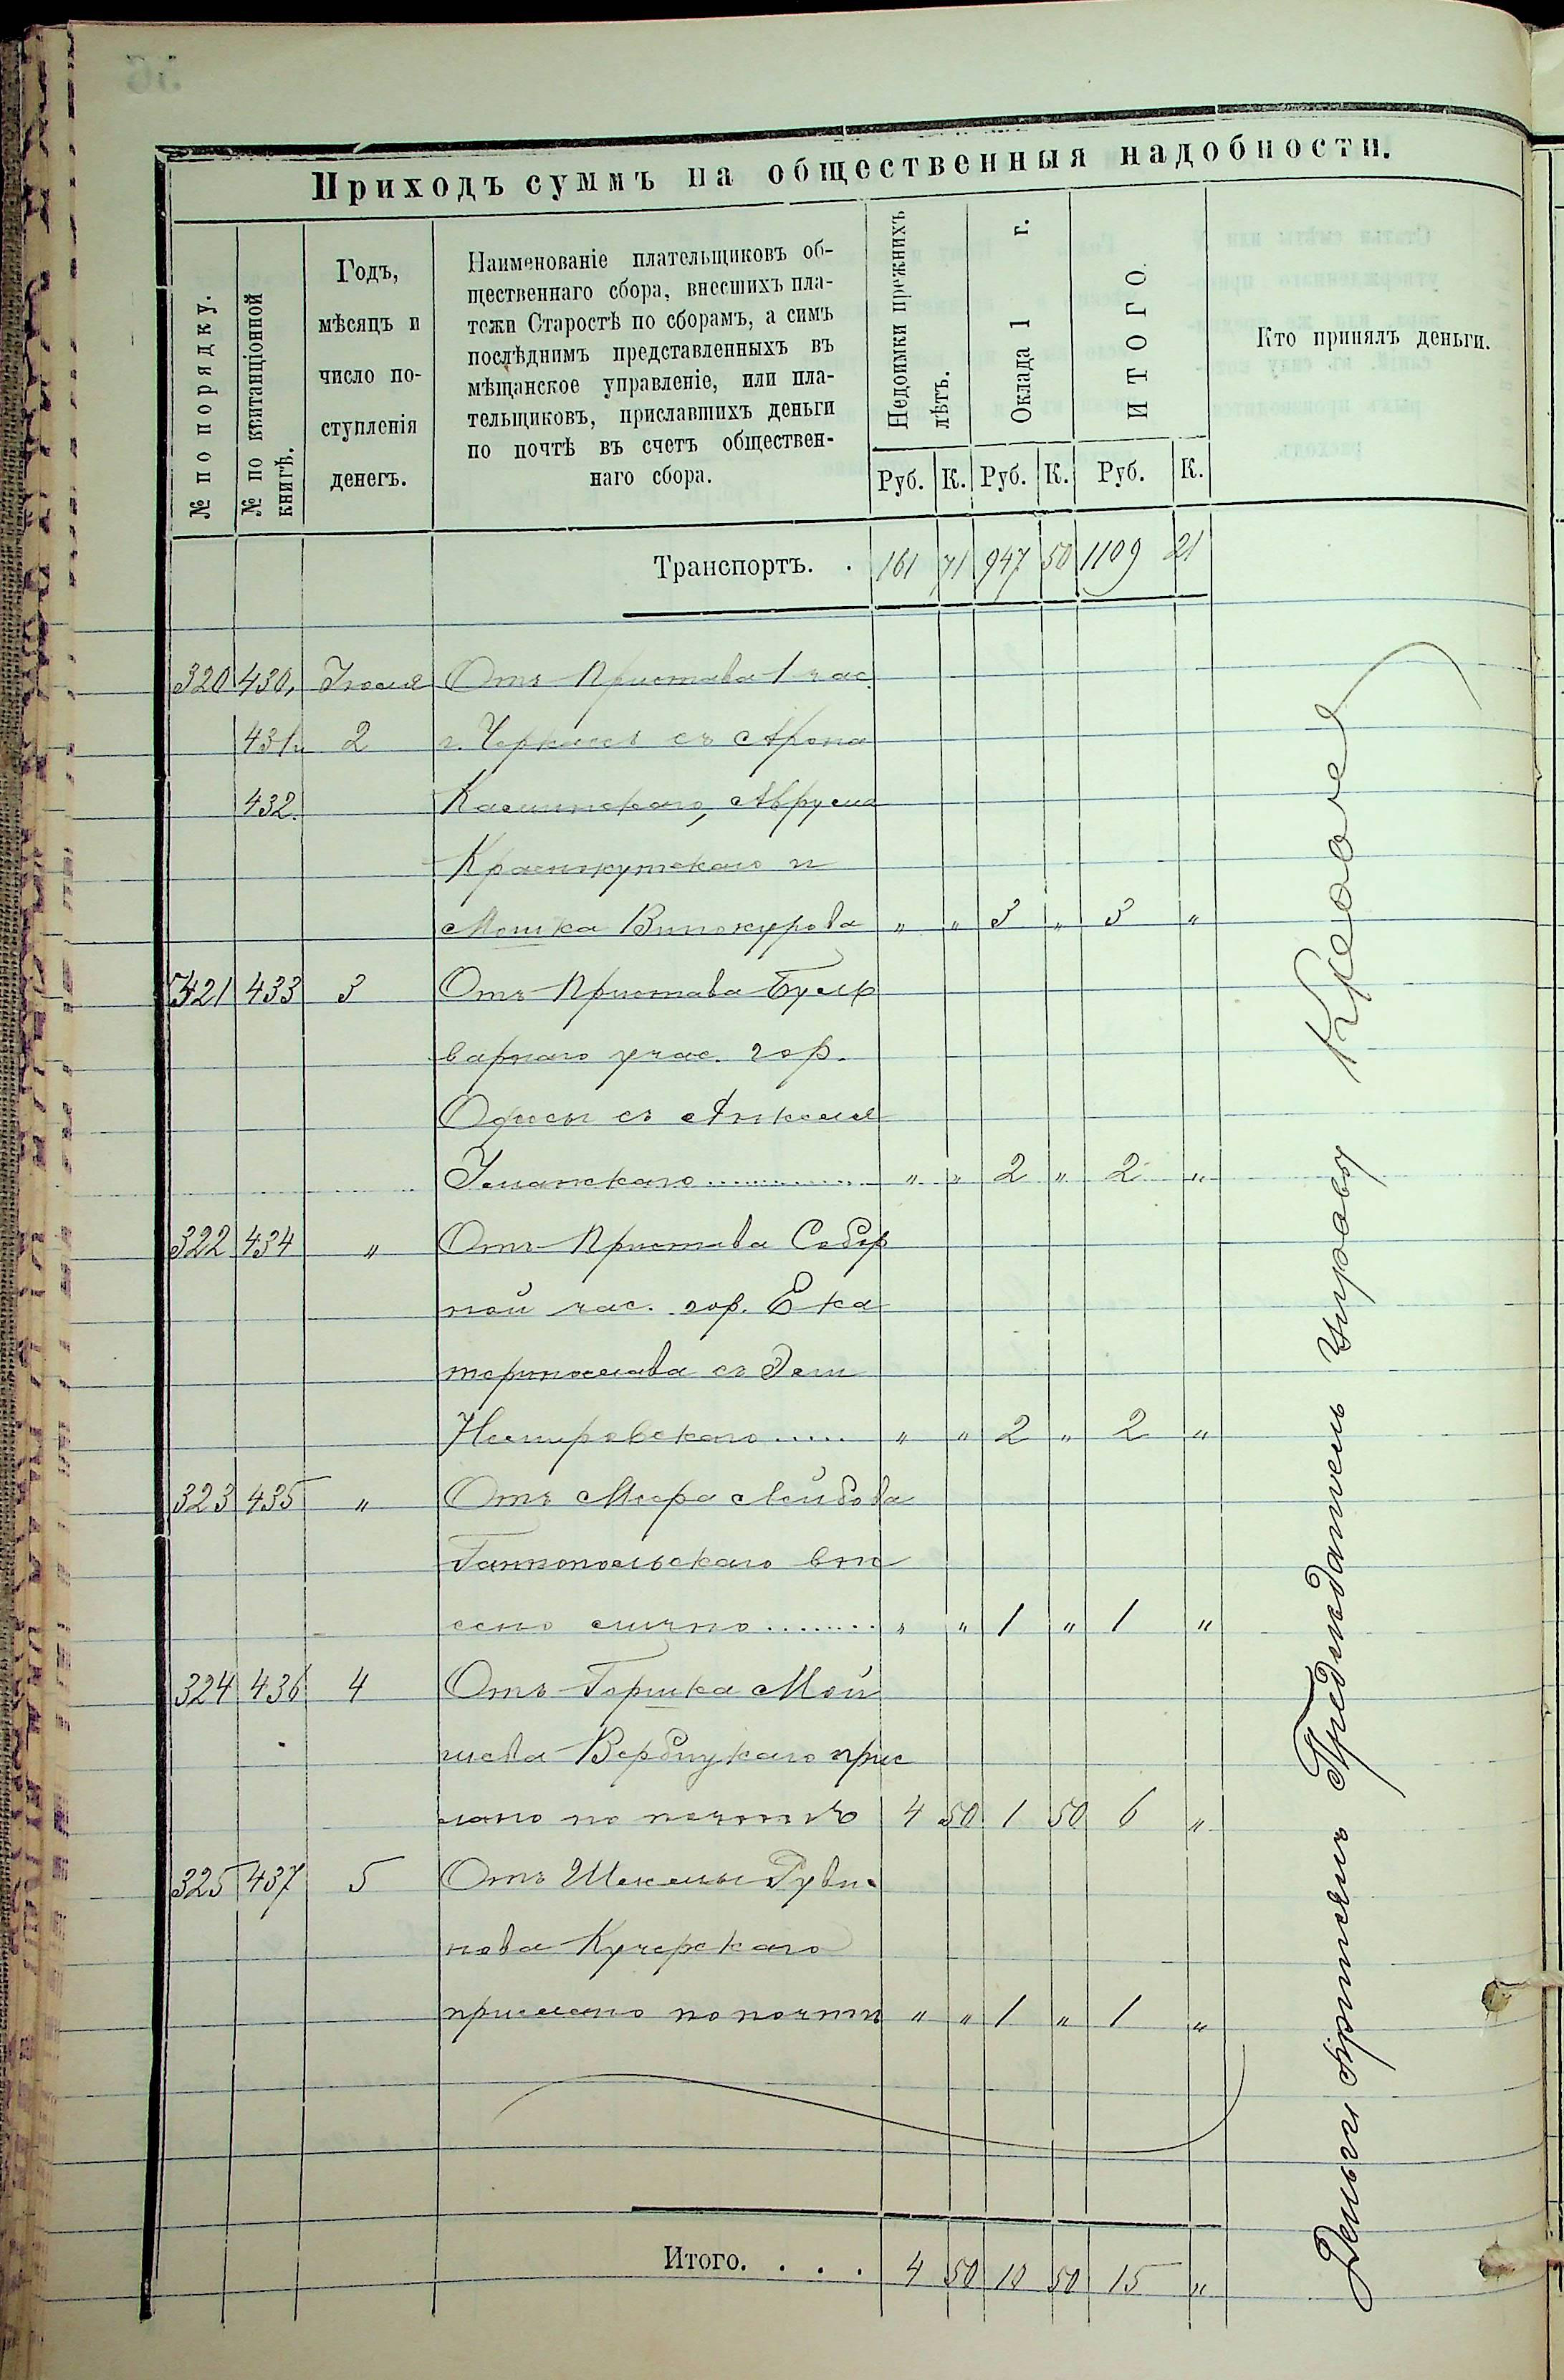 Приходъ суммъ на общественныя надобности.
№ по порядку.
№ по квитанціонной книгѣ.
Годъ,
мѣсяцъ и
число по-
ступленія
денегъ.
Наименованіе плательщиковъ об-
щественнаго сбора, внесшихъ пла-
тежи Старостѣ по сборамъ, а симъ
послѣднимъ представленныхъ въ
мѣщанское управленіе, или пла-
тельщиковъ, приславшихъ деньги
по почтѣ въ счетъ обществен-
наго сбора.
Недоимки прежнихъ лѣтъ.
Оклада 1 г.
ИТОГО.
Кто принялъ деньги.
Руб. К. Руб. К. Руб. К.
Транспортъ. . 161 71 947 50 1109 21
320 430, Іюля Отъ Пристава 1 час.
431 и 2 г. Черкассъ съ Арона
432. Каминскаго, Аврума
Краснокутскаго и
Мошка Винокурова " " 3 " 3 "
321 433 3 Отъ Пристава Буль
варнаго учас. гор.
Одесы съ Анкеля
Уманскаго ............ " " 2 " 2 "
322 434 " Отъ Пристава Собор
ной час. гор. Ека
теринослава съ
Немировскаго ..... " " 2 " 2 "
323 435 " Отъ Меера Лейбова
Ганнопольскаго вне
сено лично ........ " " 1 " 1 "
324 436 4 Отъ Гершка Мой
шева Вербицкаго прис
лано по почтѣ 4 50 1 50 6 "
325 437 5 Отъ Шекелы Руви-
нова Кучерскаго
прислано по почтѣ " " 1 " 1 "
Итого. . . . 4 50 10 50 15 "
Деньги принялъ Предсѣдатель Управы